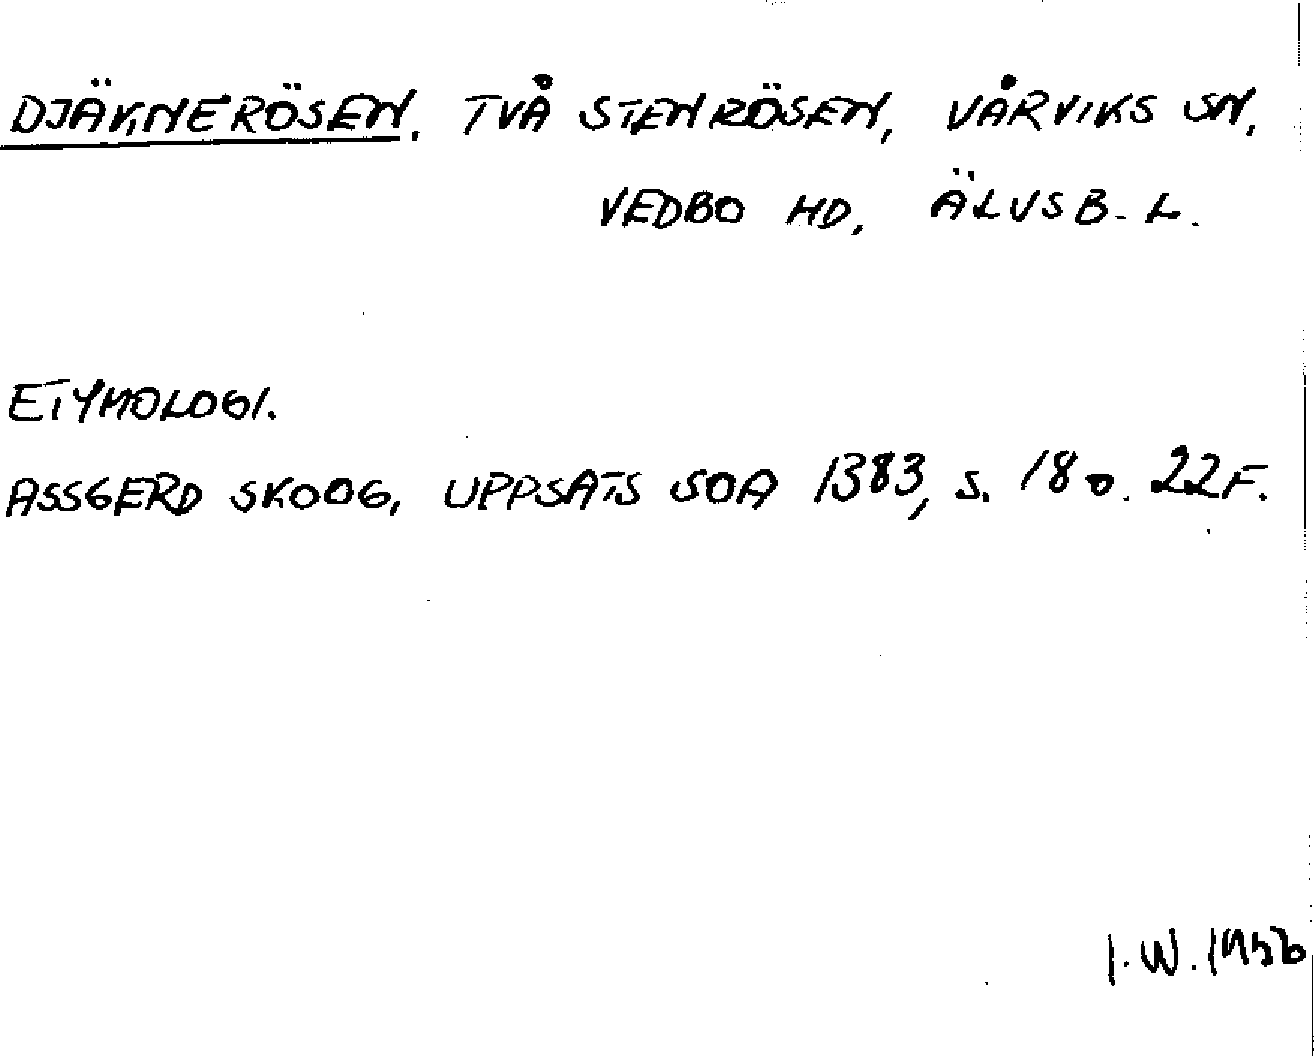 DJÄKNERÖSEN. TVÅ STENRÖSEN, VÅRVIKS SN,
VEDBO HD, ÄLVSB. L.
ETYMOLOGI.
ASSGERD SKOOG, UPPSATS SOA 1383, S. 18 O. 22F.
I.W. 1956